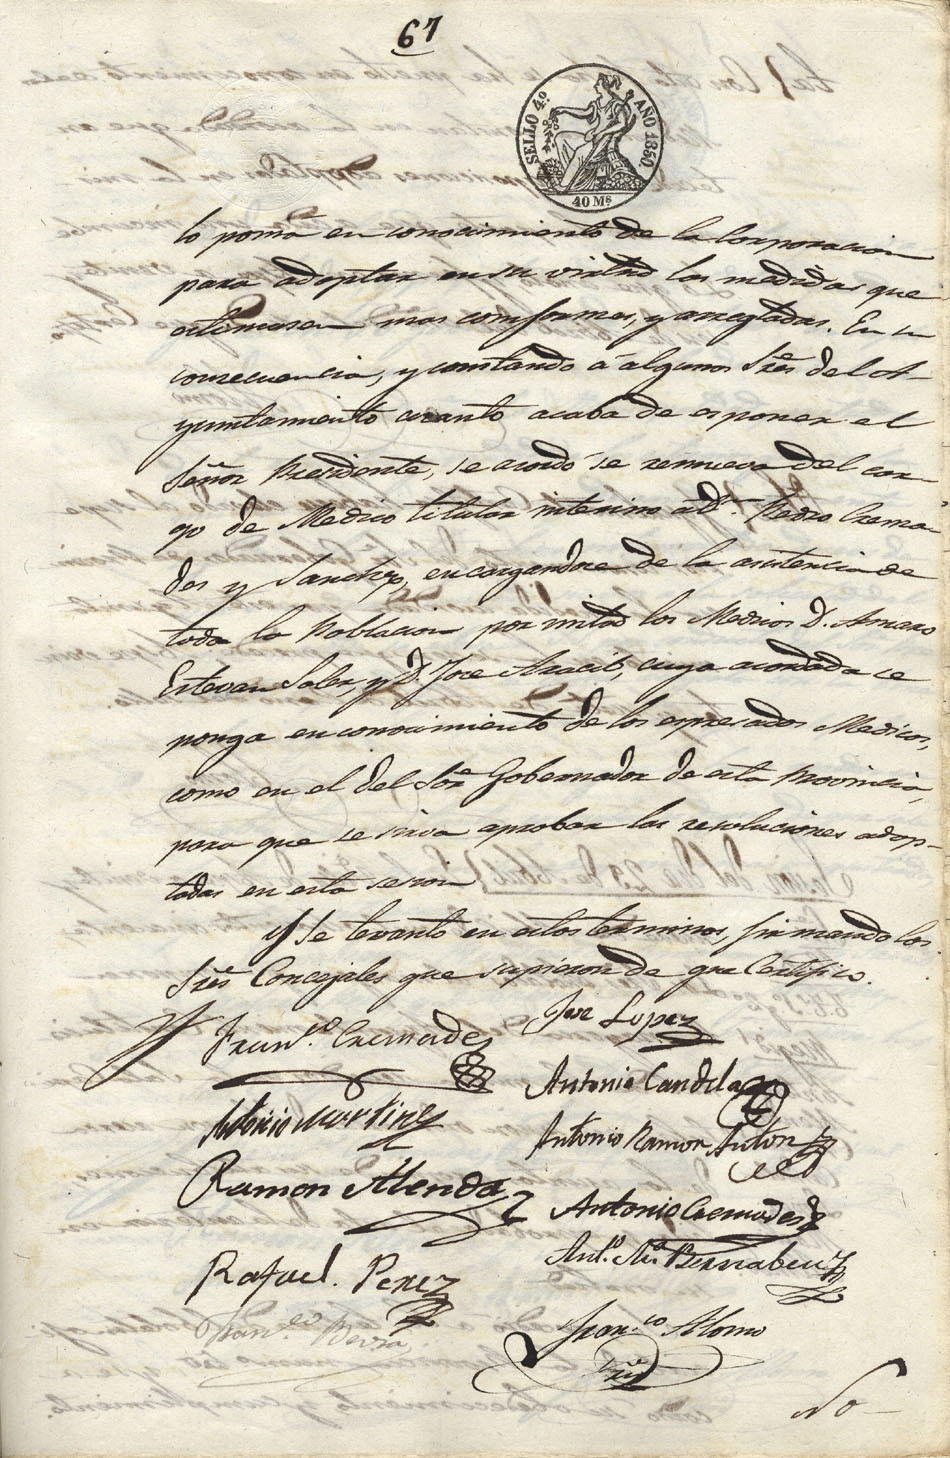 67
SELLO 4.º AÑO 1850.
40 Mˢ
lo ponia en conocimiento de la Corporacion
para adoptar en su virtud las medidas que
estimasen mas conformes, y arregladas. En su
consecuencia, y constando á algunos Sres del A-
yuntamiento cuanto acaba de esponer el
Señor Presidente, se acordó se remueva del car-
go de Medico titular interino a Dn. Pedro Crema-
des y Sanchez, encargandose de la asistencia de
toda la Poblacion por mitad los Medicos D. Amaro
Estevan Soler, y D. Jose Aracil, cuyo acordada se
ponga en conocimiento de los espresados Medicos,
como en el del Sor Gobernador de esta Provincia,
para que se sirva aprobar las resoluciones adop-
tadas en esta sesion
Y se levantó en estos terminos, firmando los
Sres Concejales que supieron de que Certifico.
Franco. Cremades
Jose Lopez
Antonio Candela
Martinez
Antonio Ramon Anton
Ramon Alenda
Antonio Cremades
Anto. Ma. Bernabeu
Rafael. Perez
Franco
Franco Alorno
Srio
No